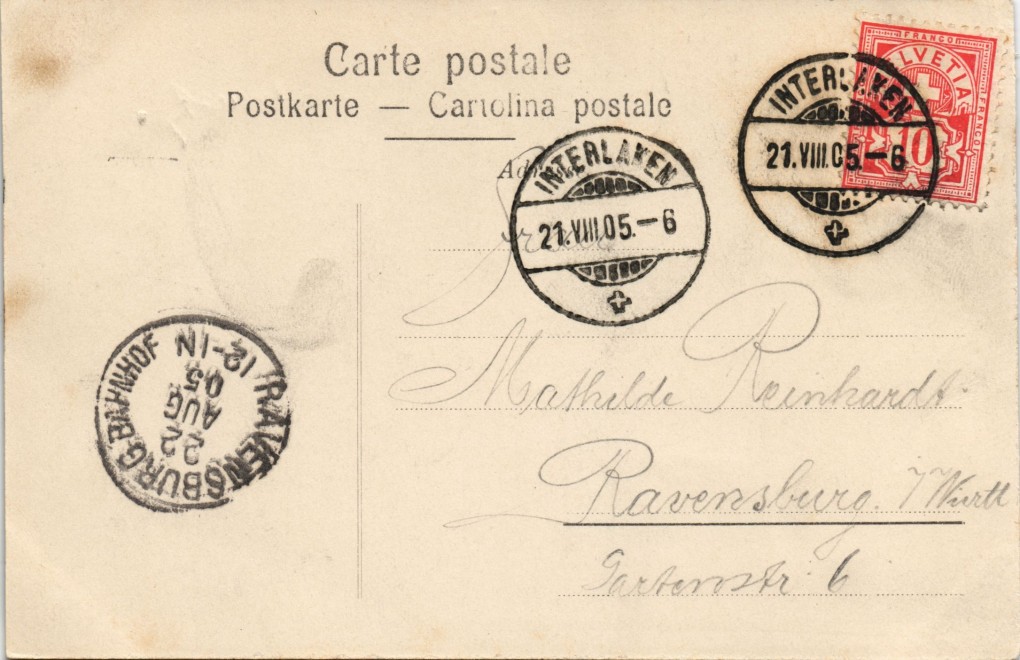 Carte postale
Postkarte — Cartolina postale
FRANCO
HELVETIA
FRANCO
10
INTERLAKEN
21.VIII.05.–6
INTERLAKEN
21.VIII.05.–6
Mathilde Reinhardt
Ravensburg. i/Württ
Gartenstr. 6
RAVENSBURG BAHNHOF
12-1N
05
AUG
22